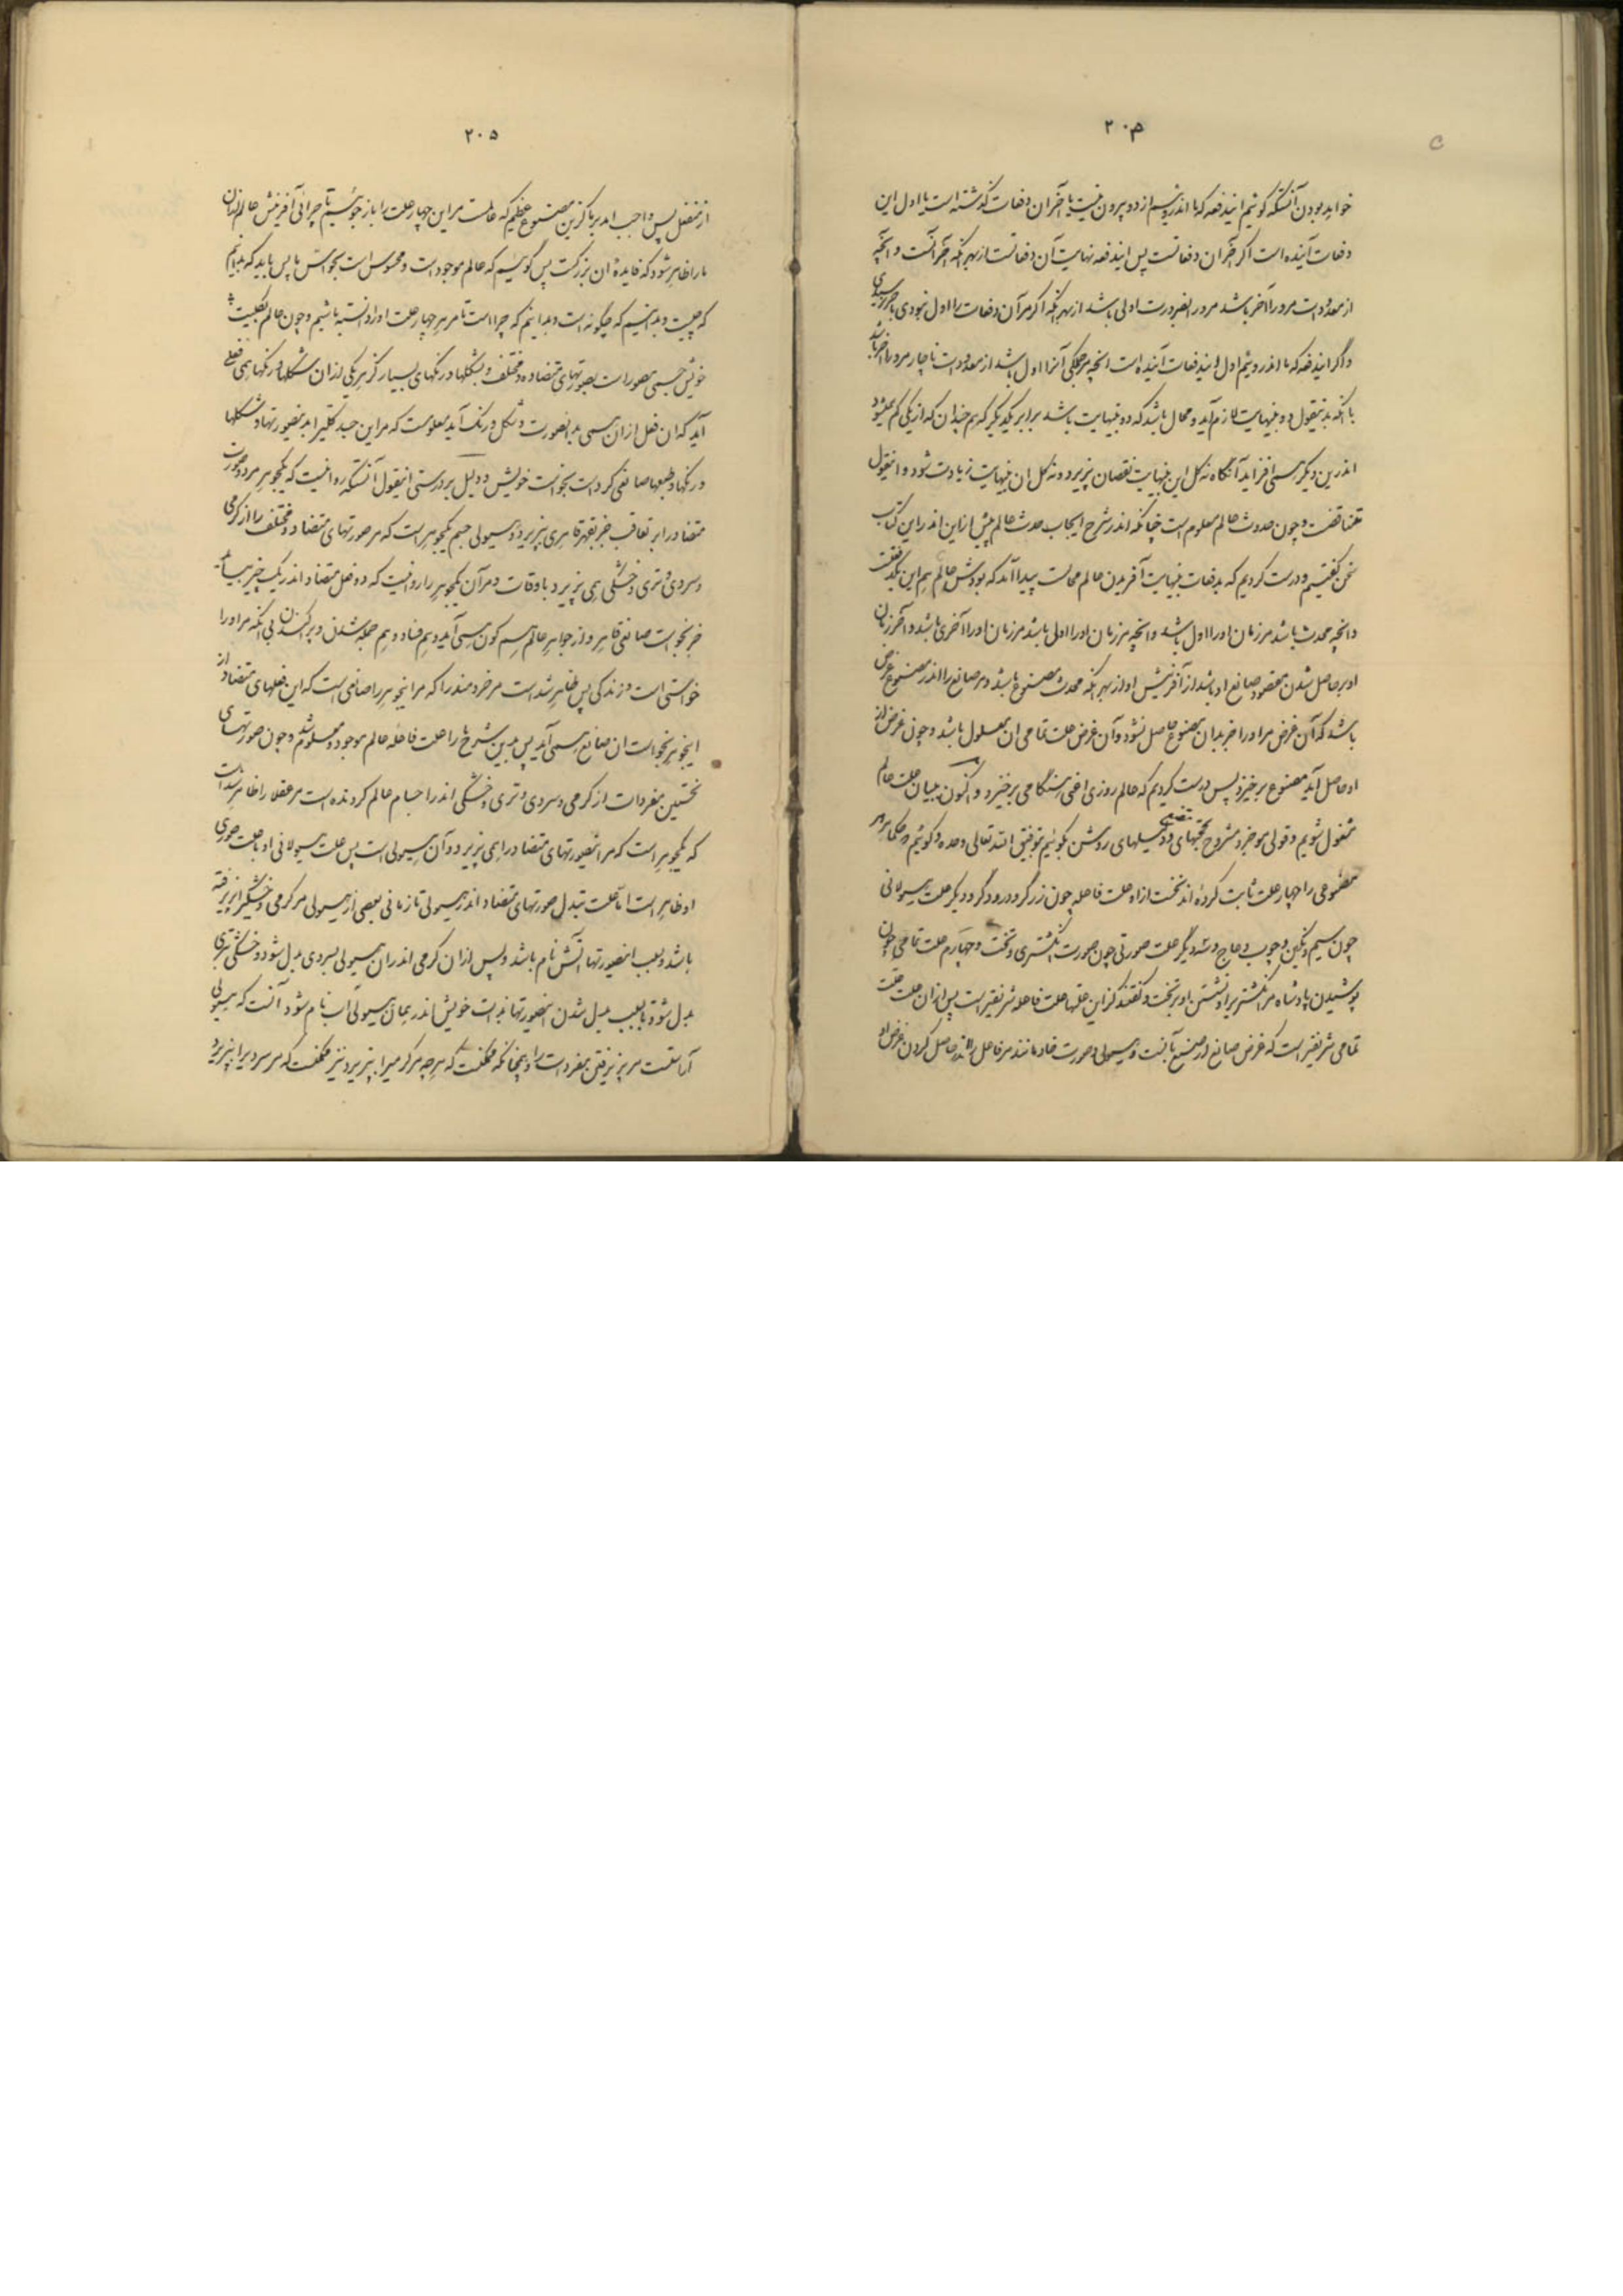 ۲۰۴
خواهد بودن آنستکه گوئیم ایندفعه که ما اندروئیم از دو بیرون نیست یا آخر آن دفعات گذشته است یا اول این
دفعات آینده است اگر آخر آن دفعاتست پس ایندفعه نهایت آن دفعاتست از بهر آنکه آخر آنست و آنچه
از معدودات مرورا آخر باشد مرورا بضرورت اولی باشد از بهر آنکه اگر مر آن دفعات را اول نبودی بآخر نرسیدی
و اگر ایندفعه که ما اندروئیم اول ایندفعات آینده است آنچه مر او را اول باشد از معدودات ناچار مرورا آخر باشد
با آنکه بدینقول دو بینهایت لازم آید و محال باشد که دو بینهایت باشد برابر یکدیگر که هم چندان که از یکی کم میشود
اندرین دیگر همی افزاید آنگاه نه کل این بینهایت نقصان پذیرد و نه کل آن بینهایت زیادت شود و اینقول
متناقضست و چون حدوث عالم معلوم است چنانکه اندر شرح ایجاب حدث عالم پیش ازین اندر این کتاب
سخن گفتیم و درست کردیم که بدفعات بینهایت آفریدن عالم محالست پیدا آمد که بودش عالم هم این یکدفعتست
و آنچه محدث باشد مر زمان اورا اول باشد و آنچه مر زمان اورا اولی باشد مر زمان اورا آخری باشد و آخر زمان
او بر حاصل شدن مقصود صانع او باشد از آفرینش او از بهر آنکه محدث مصنوع باشد و مر صانع را اندر مصنوع غرض
باشد که آن غرض مر او را جز بدان مصنوع حاصل نشود و آن غرض علت تمامی آن معلول باشد و چون غرض از
او حاصل آید مصنوع برخیزد پس درست کردیم که عالم روزی برخیزد و اکنون ببیان علت عالم
مشغول شویم و قولی موجز و مشروح بحجتهای و دلیلهای روشن بگوئیم بتوفیق الله تعالی وحده و گوئیم که حکما مر هر
مصنوعی را چهار علت ثابت کرده اند نخست ازاو علت فاعله چون زرگر و درودگر و دیگر علت هیولانی
چون سیم و نگین و چوب و عاج و سه دیگر علت صورتی چون صورت انگشتری و تخت و چهارم علت تمامی چون
پوشیدن پادشاه مر انگشتری را و نشستن او بر تخت و گفتند کزاین علتها علت فاعله شریفتر است پس ازان علت
تمامی شریفتر است که غرض صانع از صنیع آنست و هیولی و صورت خادمانند مر فاعل را اندر حاصل کردن غرض او
۲۰۵
از منفعل پس واجب آمد بر ما کزین مصنوع عظیم که عالمست مر این چهار علت را باز جوئیم تا چرائی آفرینش عالم
مارا ظاهر شود که فایدهٔ آن بزرگست پس گوئیم که عالم موجود است و محسوس است بحواس ما پس باید که بدانیم
که چیست و بدانیم که چگونه است و بدانیم که چراست تا مر هر چهار علت اورا دانسته باشیم و چون عالم بکلیت
خویش جسمی مصور است بصورتهای متضاد و مختلف و بشکلها و رنگهای بسیار کز هر یکی ازان شکلها و رنگها همی فعلی
آید که آن فعل ازان همی بدانصورت و شکل و رنگ آید معلومست که مر این جسد کلی را بدینصورتها و شکلها
و رنگها و طبعها صانعی کرد است بخواست خویش و دلیل بر درستی اینقول آنستکه روا نیست که یکجوهر مر دو صورت
متضاد را بر تعاقب جز بقهر قاهری بپذیرد و هیولی جسم یکجوهر است که مر صورتهای متضاد و مختلف را از گرمی
و سردی و تری و خشکی همی پذیرد باوقات و مر آن یکجوهر را روا نیست که دو فعل متضاد اندر یک چیز بیاید
جز بخواست صانعی قاهر و از جواهر عالم همی کون آید و هم فساد و هم جمله شدن و پراکندن بی آنکه مر اورا
خواستی است و زندگی پس ظاهر شد است مر خردمند را که مر اینجوهر را صانعی است که این فعلهای متضاد از
اینجوهر بخواست آن صانع همی آید پس بدین شرح مارا علت فاعلهٔ عالم موجود و معلوم شد و چون صورتهای
نخستین مفردات از گرمی و سردی و تری و خشکی اندر اجسام عالم گردنده است مر عقلا را ظاهر شد است
که یکجوهر است که مر اینصورتهای متضاد را همی پذیرد و آن هیولی است پس علت هیولانی او با علت صوری
او ظاهر است اما علت تبدل صورتهای متضاد اندر هیولی تا زمانی بعضی از هیولی مر گرمی و خشکی را پذیرفته
باشد و بسبب اینصورتها آتش نام باشد و پس ازان گرمی اندر آن هیولی بسردی بدل شود و خشکی بتری
بدل شود تا بسبب بدل شدن اینصورتها بذات خویش اندر همان هیولی آب نام شود آنست که هیولی
آراستست مر پذیرفتن مفردات را و همچنانکه ممکنست که هر چه مر گرمی را بپذیرد نیز ممکنست که مر سردی را بپذیرد